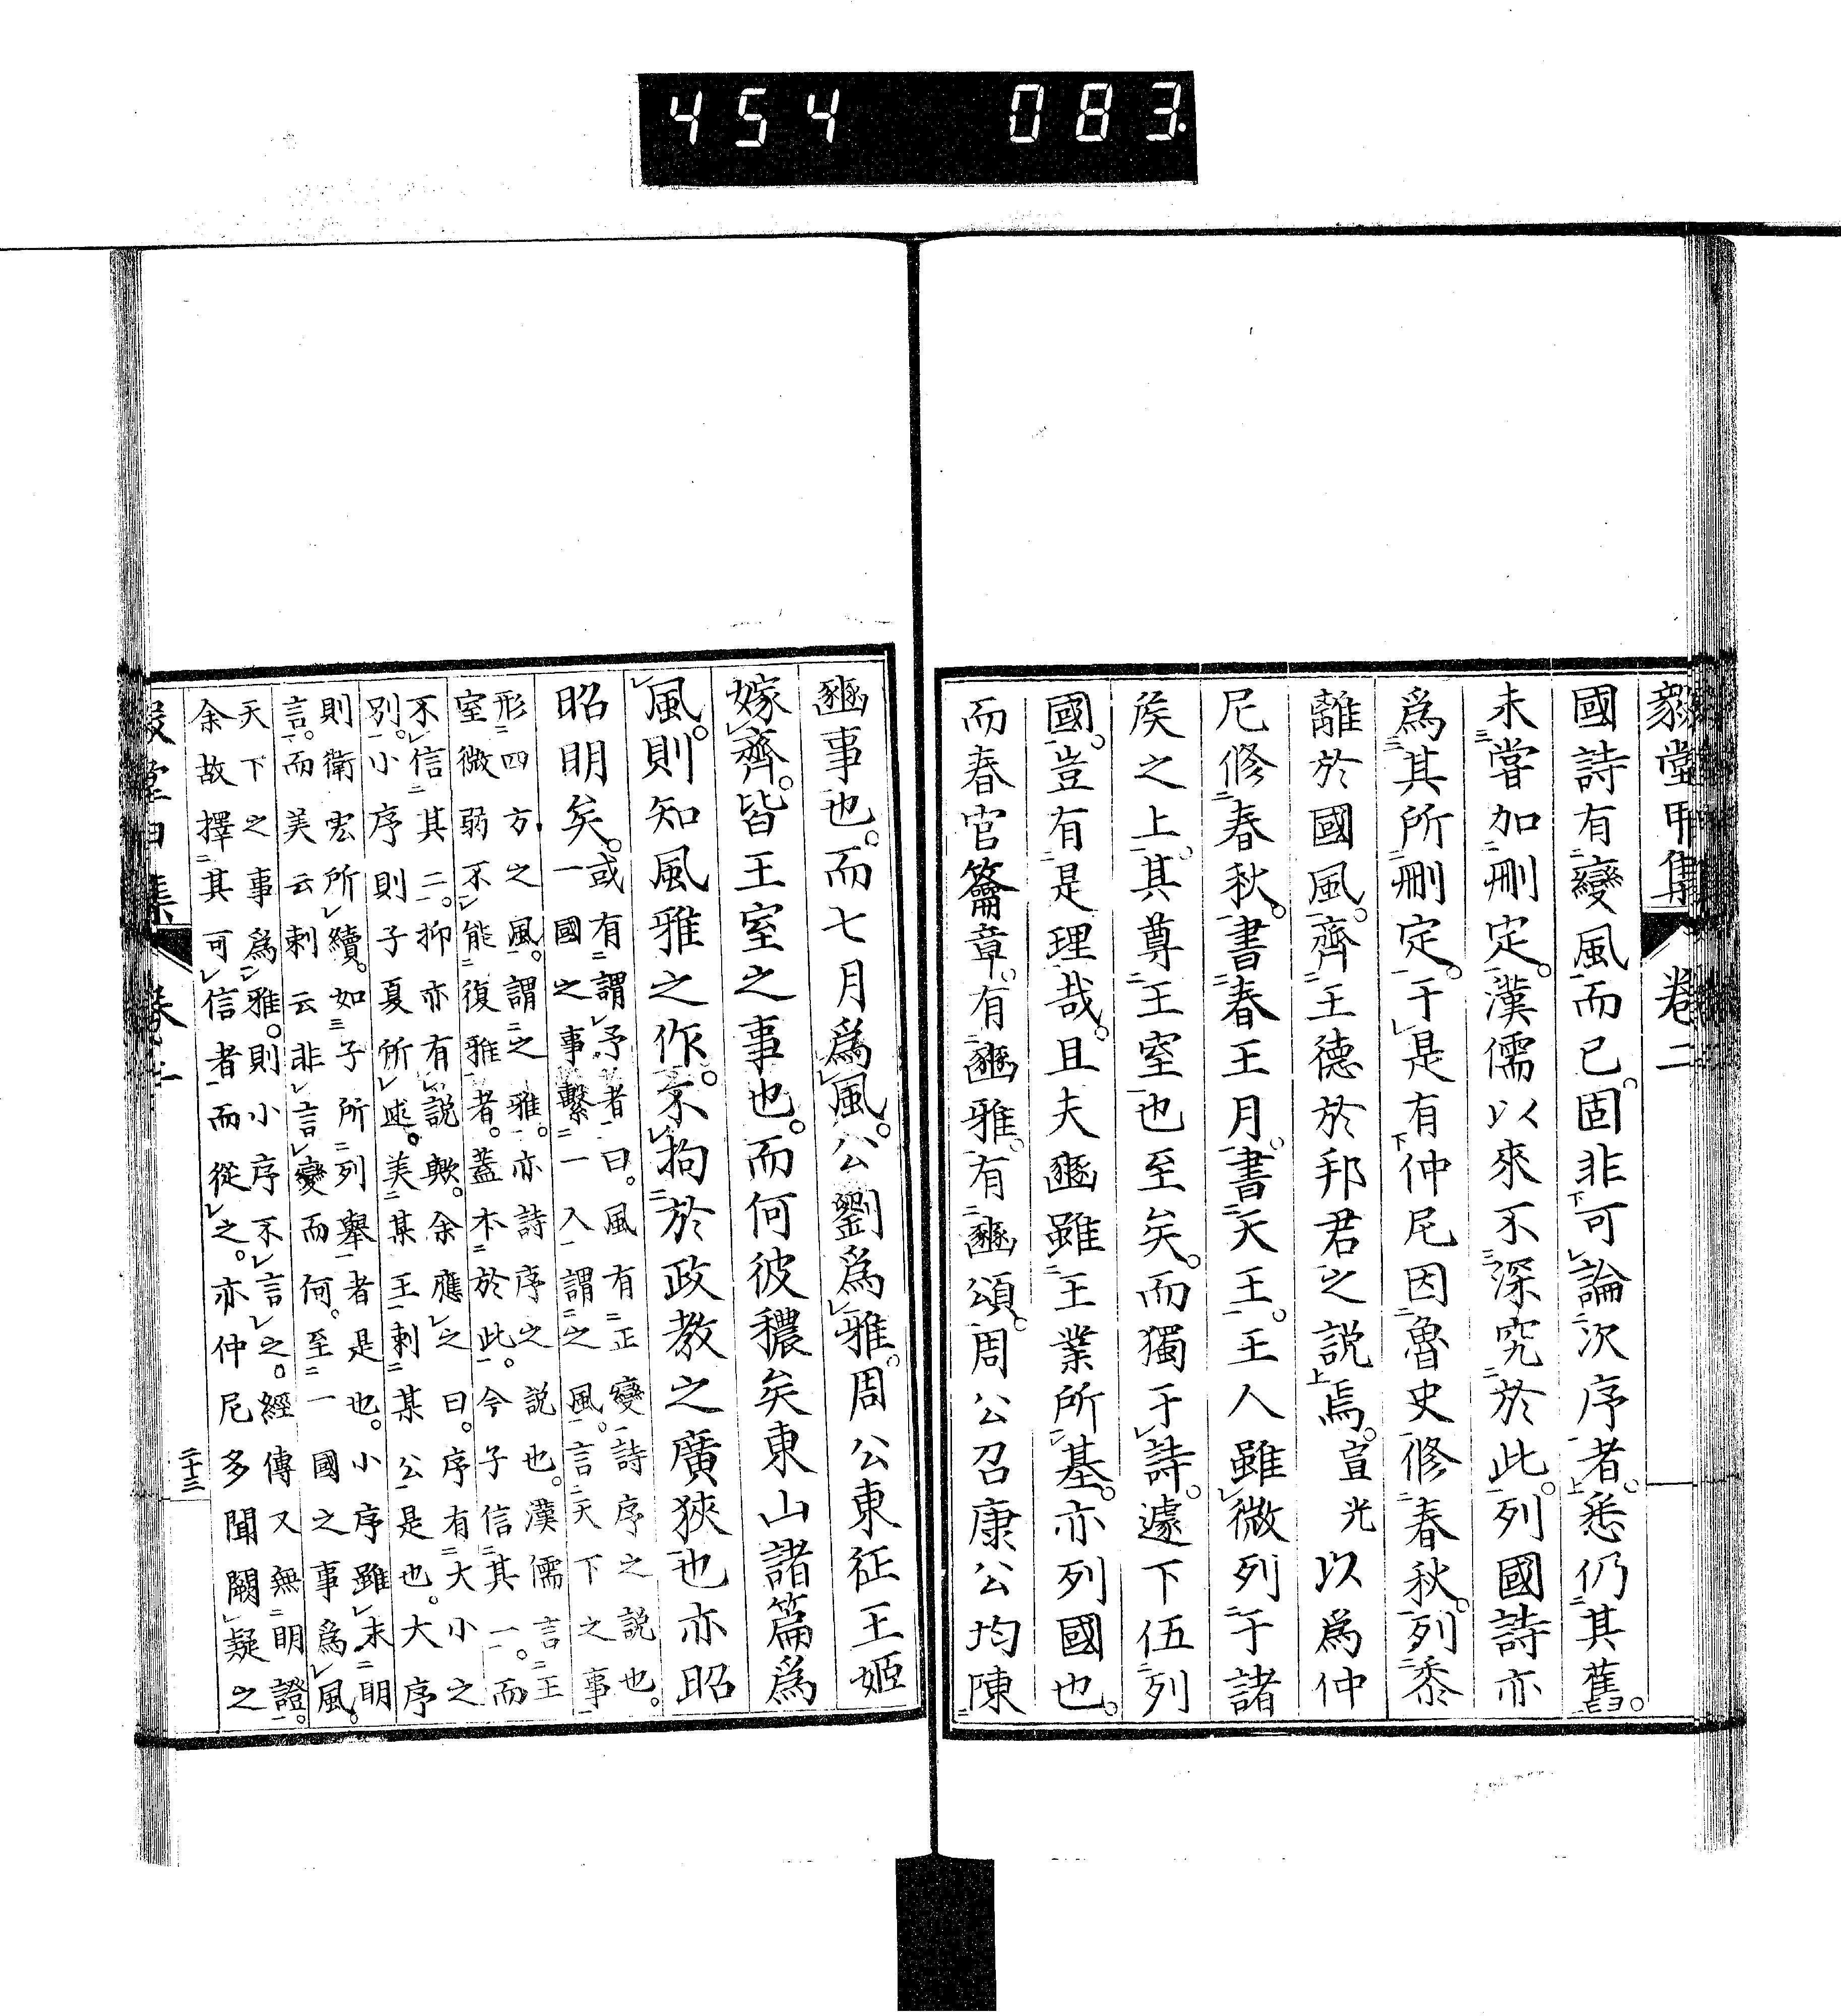 454 083
毅堂甲集 卷二
國詩有變風而已。固非可論次序者。悉仍其舊。
未嘗加刪定。漢儒以來不深究於此。列國詩亦
爲其所刪定。于是有仲尼因魯史修春秋。列黍
離於國風。齊王德於邦君之說焉。宣光以爲仲
尼修春秋。書春王月。書天王。王人雖微列于諸
矦之上。其尊王室也至矣。而獨于詩。遽下伍列
國。豈有是理哉。且夫豳雖王業所基。亦列國也。
而春官籥章。有豳雅。有豳頌。周公召康公均陳
豳事也。而七月爲風。公劉爲雅。周公東征王姬
嫁齊。皆王室之事也。而何彼穠矣東山諸篇爲
風。則知風雅之作。不拘於政教之廣狹也亦昭
昭明矣。
或有謂予者曰。風有正變詩序之說也。
一國之事繫一人謂之風。言天下之事
形四方之風。謂之雅。亦詩序之說也。漢儒言王
室微弱不能復雅者。蓋本於此。今子信其一。而
不信其二。抑亦有說歟。余應之曰。序有大小之
別。小序則子夏所述。美某王刺某公是也。大序
則衛宏所續。如子所列舉者是也。小序雖未明
言。而美云刺云非言變而何。至一國之事爲風。
天下之事爲雅。則小序不言之。經傳又無明證。
余故擇其可信者而從之。亦仲尼多聞闕疑之
二十三